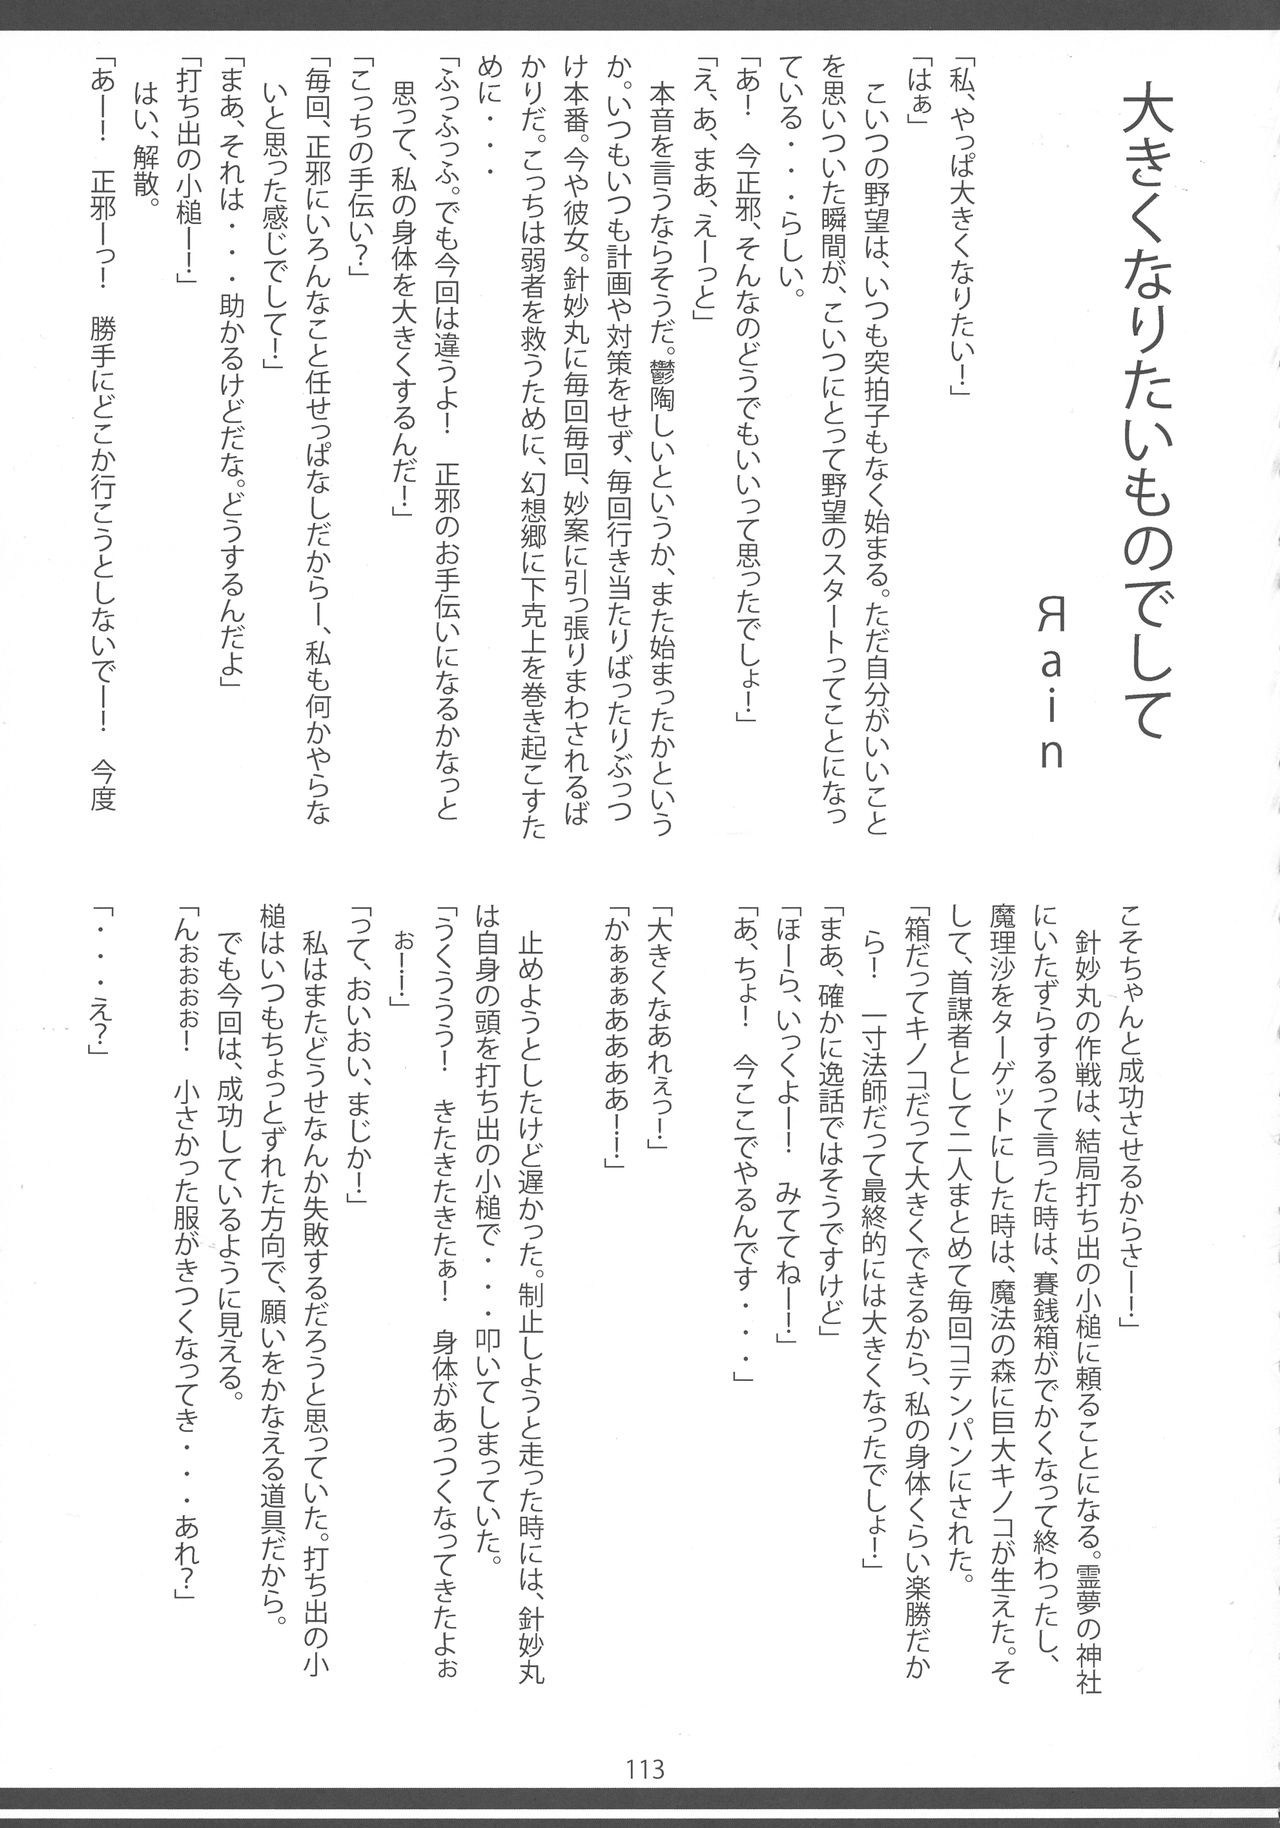 大きくなりたいものでして
Яain
「私、やっぱ大きくなりたい！」
「はぁ」
こいつの野望は、いつも突拍子もなく始まる。ただ自分がいいこと
を思いついた瞬間が、こいつにとって野望のスタートってことになっ
ている・・・らしい。
「あ！　今正邪、そんなのどうでもいいって思ったでしょ！」
「え、あ、まあ、えーっと」
本音を言うならそうだ。鬱陶しいというか、また始まったかという
か。いつもいつも計画や対策をせず、毎回行き当たりばったりぶっつ
け本番。今や彼女。針妙丸に毎回毎回、妙案に引っ張りまわされるば
かりだ。こっちは弱者を救うために、幻想郷に下克上を巻き起こすた
めに・・・
「ふっふっふ。でも今回は違うよ！　正邪のお手伝いになるかなっと
思って、私の身体を大きくするんだ！」
「こっちの手伝い？」
「毎回、正邪にいろんなこと任せっぱなしだからー、私も何かやらな
いと思った感じでして！」
「まあ、それは・・・助かるけどだな。どうするんだよ」
「打ち出の小槌ー！」
はい、解散。
「あー！　正邪ーっ！　勝手にどこか行こうとしないでー！　今度
こそちゃんと成功させるからさー！」
針妙丸の作戦は、結局打ち出の小槌に頼ることになる。霊夢の神社
にいたずらするって言った時は、賽銭箱がでかくなって終わったし、
魔理沙をターゲットにした時は、魔法の森に巨大キノコが生えた。そ
して、首謀者として二人まとめて毎回コテンパンにされた。
「箱だってキノコだって大きくできるから、私の身体くらい楽勝だか
ら！　一寸法師だって最終的には大きくなったでしょ！」
「まあ、確かに逸話ではそうですけど」
「ほーら、いっくよー！　みててね―！」
「あ、ちょ！　今ここでやるんです・・・」
「大きくなあれぇっ！」
「かぁぁぁああああ！―」
止めようとしたけど遅かった。制止しようと走った時には、針妙丸
は自身の頭を打ち出の小槌で・・・叩いてしまっていた。
「うくううう！　きたきたきたぁ！　身体があっつくなってきたよぉ
ぉー！」
「って、おいおい、まじか！」
私はまたどうせなんか失敗するだろうと思っていた。打ち出の小
槌はいつもちょっとずれた方向で、願いをかなえる道具だから。
でも今回は、成功しているように見える。
「んぉぉぉぉ！　小さかった服がきつくなってき・・・あれ？」
「・・・え？」
113